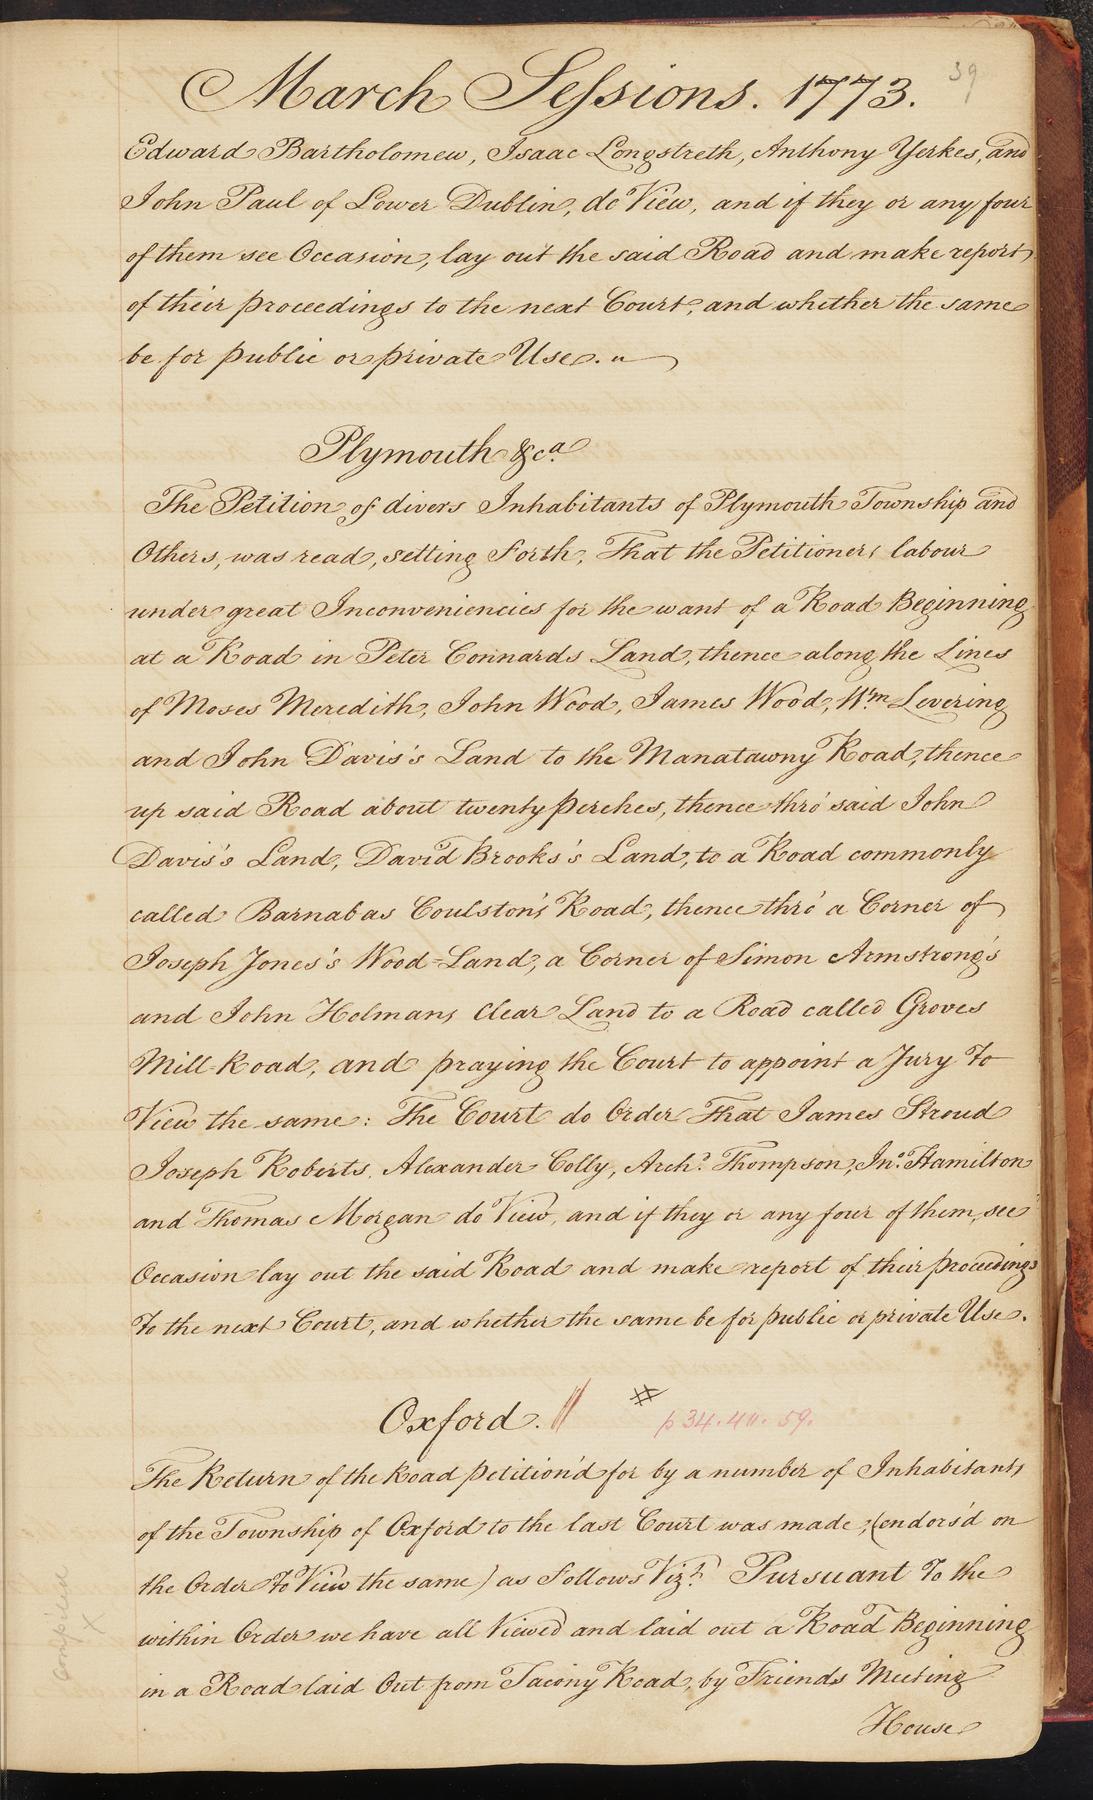 39
March Sessions. 1773.
Edward Bartholomew, Isaac Longstreth, Anthony Yerkes, and
John Paul of Lower Dublin, do View, and if they or any four
of them see Occasion, lay out the said Road and make report
of their proceedings to the next Court, and whether the same
be for public or private Use.
Plymouth &ca.
The Petition of divers Inhabitants of Plymouth Township and
Others, was read, setting Forth, That the Petitioners labour
under great Inconveniencies for the want of a Road Beginning
at a Road in Peter Connards Land, thence along the Lines
of Moses Meredith, John Wood, James Wood, Wm. Levering
and John Davis's Land to the Manatawny Road, thence
up said Road about twenty perches, thence thro' said John
Davis's Land, David Brooks's Land, to a Road commonly
called Barnabas Coulston's Road, thence thro' a Corner of
Joseph Jones's Wood=Land, a Corner of Simon Armstrong's
and John Holmans Clear Land to a Road called Groves
Mill-Road, and praying the Court to appoint a Jury To
View the same: The Court do Order That James Stroud
Joseph Roberts, Alexander Colly, Archd. Thompson, Jno. Hamilton
and Thomas Morgan do View, and if they or any four of them, see
Occasion lay out the said Road and make report of their proceedings
To the next Court, and whether the same be for public or private Use.
Oxford. # p 34. 40. 59.
The Return of the Road petition'd for by a number of Inhabitants
of the Township of Oxford to the last Court was made, (endors'd on
the Order To View the same) as Follows Vizt. Pursuant To the
within Order we have all Viewed and laid out a Road Beginning
in a Road laid Out from Tacony Road, by Friends Meeting
House
Compared
X